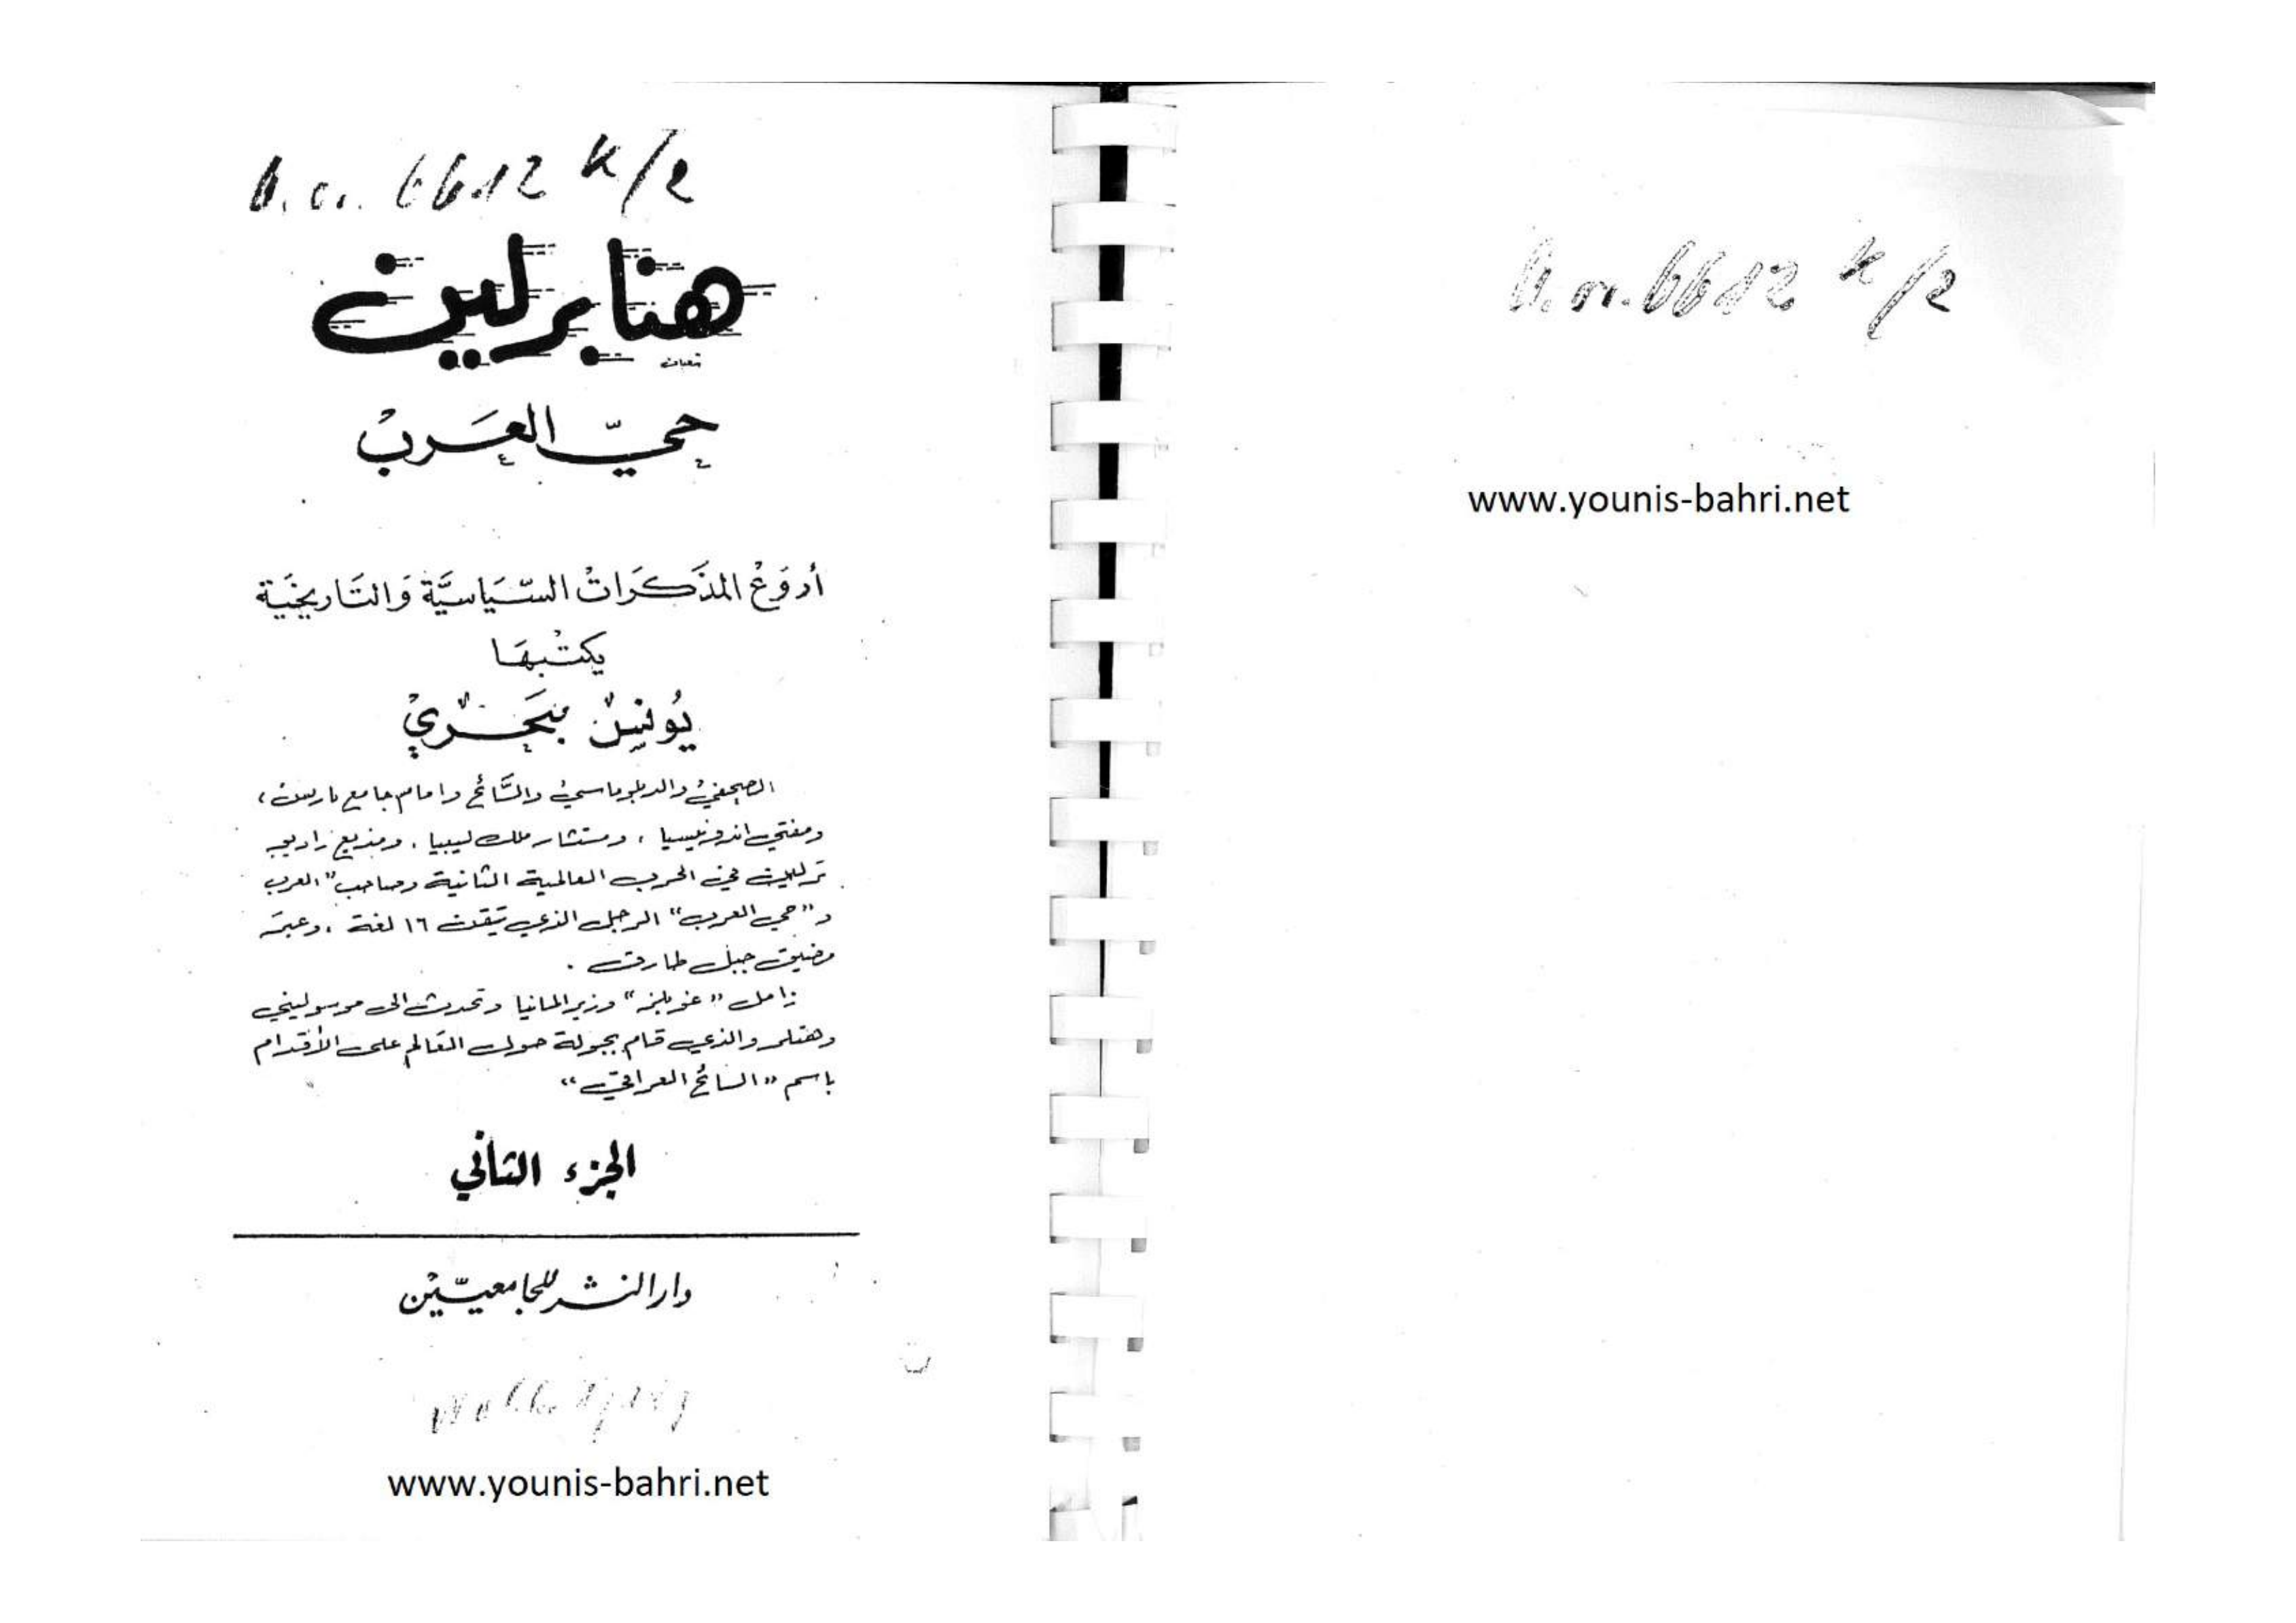 6612 k/2
هنا برلين
شعبان
حيّ العَربْ
أروَعْ المذَكرَاتْ السّيَاسيَّة وَالتَاريخيَة
يكتْبهَا
يُونسْ بحَري
الصحفيْ والدبلوماسيْ والسَّائح وامام جامع باريس ،
ومفتي اندونيسيا ، ومستشار ملك ليبيا ، ومذيع راديو
برلين في الحرب العالمية الثانية وصاحب "العرب
و"حي العرب" الرجل الذي يتقن ١٦ لغة ، وعبرَ
مضيق جبل طارق .
زامل "غوبلز" وزير المانيا وتحدث الى موسوليني
وهتلر والذي قام بجولة حول العَالم على الأقدام
باسم "السائح العراقي"
الجزء الثاني
دار النشر للجامعيّين
www.younis-bahri.net
6612 k/2
www.younis-bahri.net